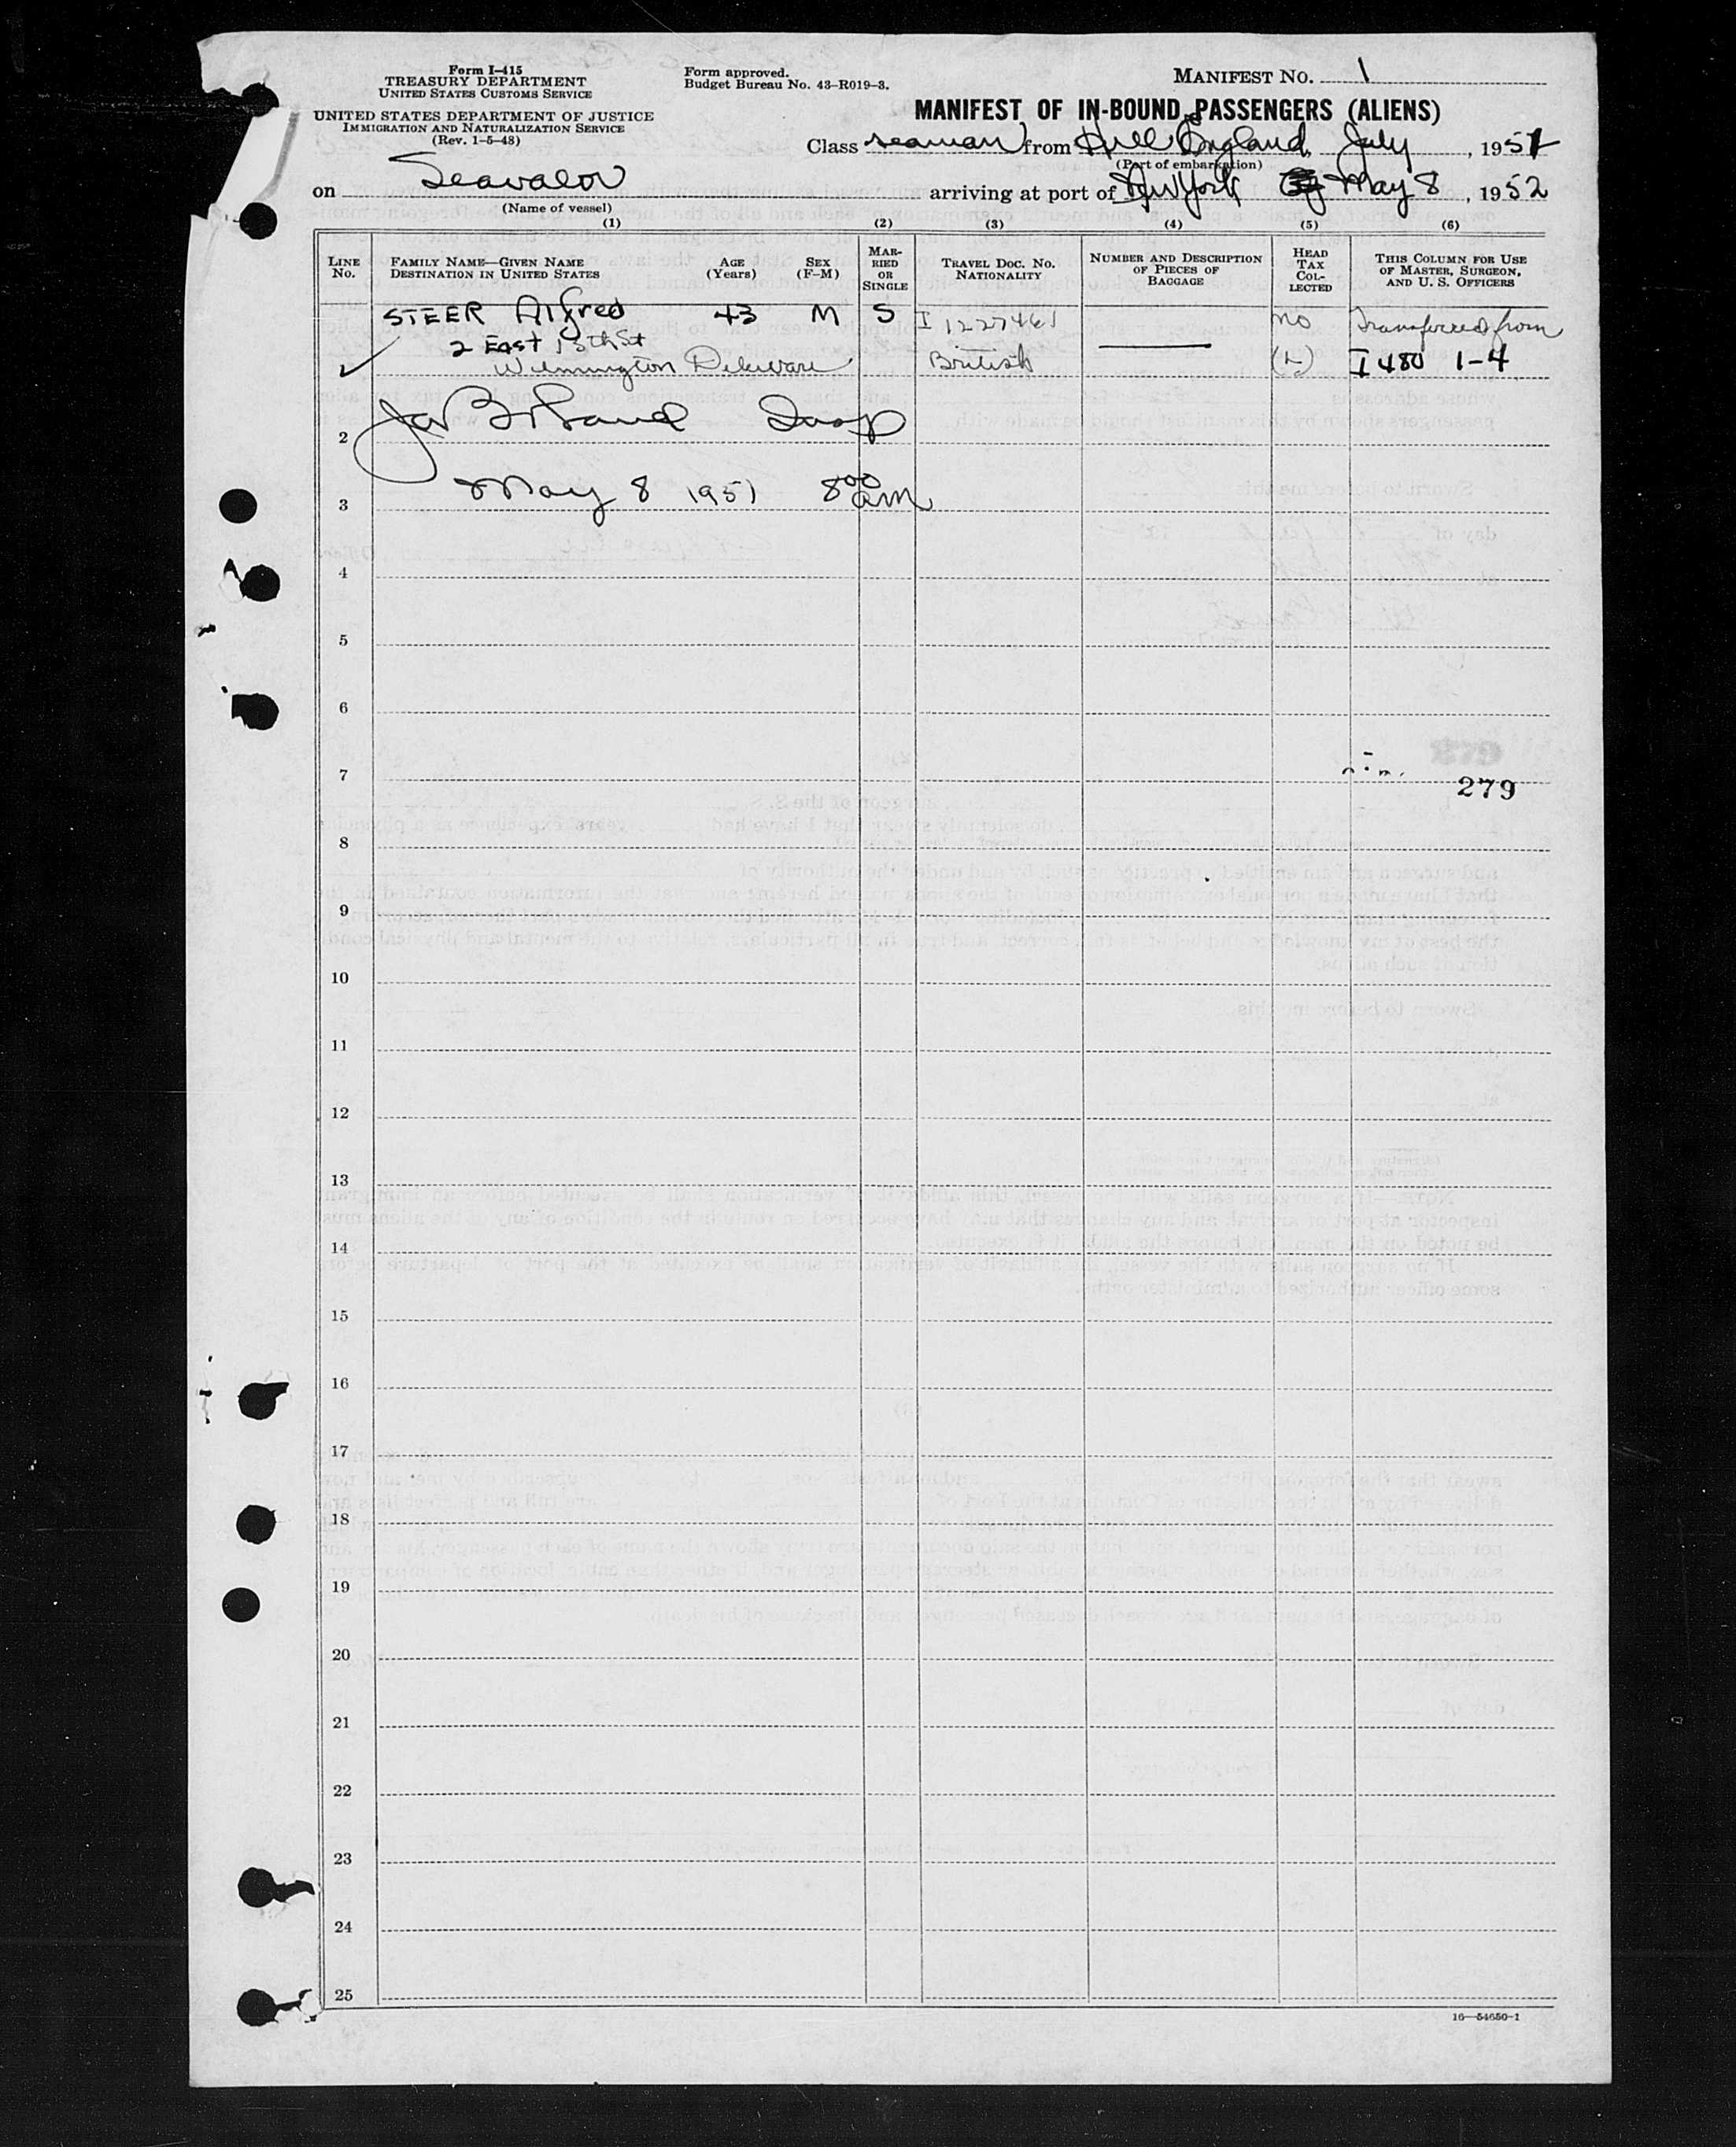 Form I-415
TREASURY DEPARTMENT
UNITED STATES CUSTOMS SERVICE
UNITED STATES DEPARTMENT OF JUSTICE
IMMIGRATION AND NATURALIZATION SERVICE
(Rev. 1-5-48)
Form approved.
Budget Bureau No. 43-R019-3.
MANIFEST NO. 1
MANIFEST OF IN-BOUND PASSENGERS (ALIENS)
Class seaman from Hull England, July, 1951
(Port of embarkation)
on Seavalor arriving at port of New York May 8, 1952
(Name of vessel)
(1) (2) (3) (4) (5) (6)
LINE No. FAMILY NAME—GIVEN NAME DESTINATION IN UNITED STATES AGE (Years) SEX (F-M) MARRIED OR SINGLE TRAVEL DOC. NO. NATIONALITY NUMBER AND DESCRIPTION OF PIECES OF BAGGAGE HEAD TAX COLLECTED THIS COLUMN FOR USE OF MASTER, SURGEON, AND U. S. OFFICERS
STEER Alfred 43 M S I 1227461 no Transferred from
2 East 13th St
Wilmington Delaware British I 480 1-4
2 Insp
3 May 8 1951 8 00 am
4
5
6
7
279
8
9
10
11
12
13
14
15
16
17
18
19
20
21
22
23
24
25
16—54650-1